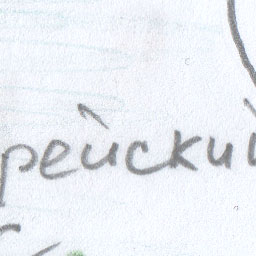 рейский